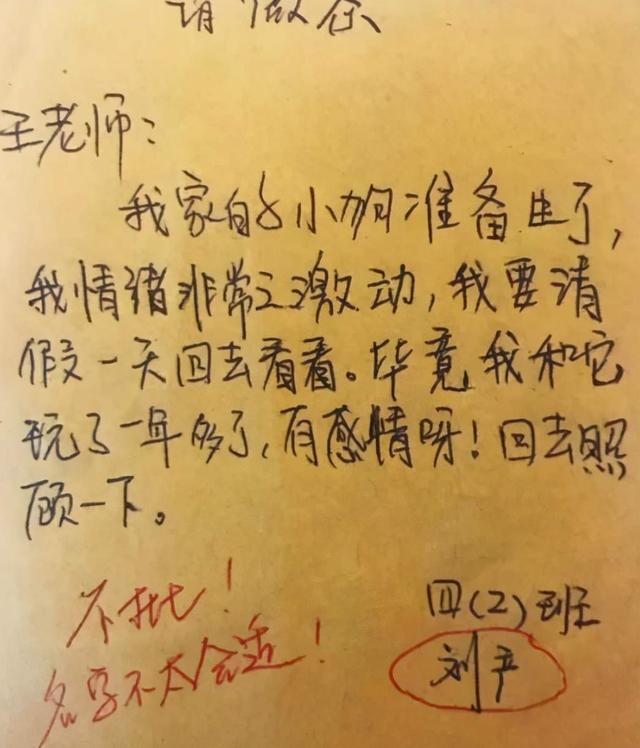 请假条
王老师：
我家的小狗准备生了，
我情绪非常之激动，我要请
假一天回去看看。毕竟，我和它
玩了一年多了，有感情呀！回去照
顾一下。
四(2)班
刘产
不批！
名字不太合适！